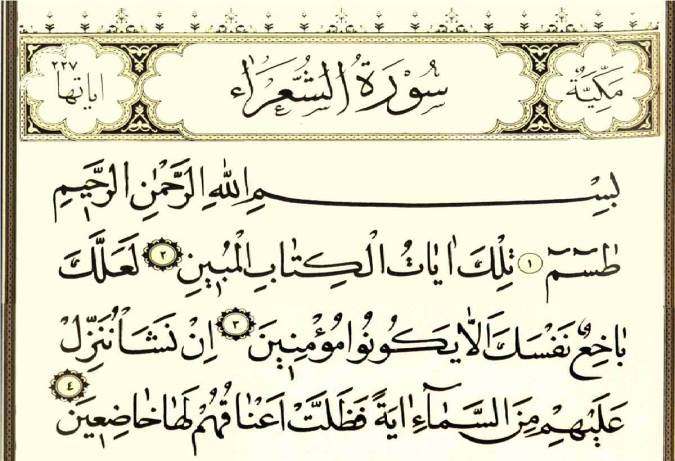 مَكِّيَّةٌ سُورَةُ الشُّعَرَاءِ اٰيَاتُهَا ٢٢٧
بِسْمِ اللّٰهِ الرَّحْمٰنِ الرَّحِيمِ
طٰسٓمٓ ١ تِلْكَ اٰيَاتُ الْكِتَابِ الْمُبِينِ ٢ لَعَلَّكَ
بَاخِعٌ نَفْسَكَ اَلَّا يَكُونُوا مُؤْمِنِينَ ٣ اِنْ نَشَأْ نُنَزِّلْ
عَلَيْهِمْ مِنَ السَّمَٓاءِ اٰيَةً فَظَلَّتْ اَعْنَاقُهُمْ لَهَا خَاضِعِينَ ٤